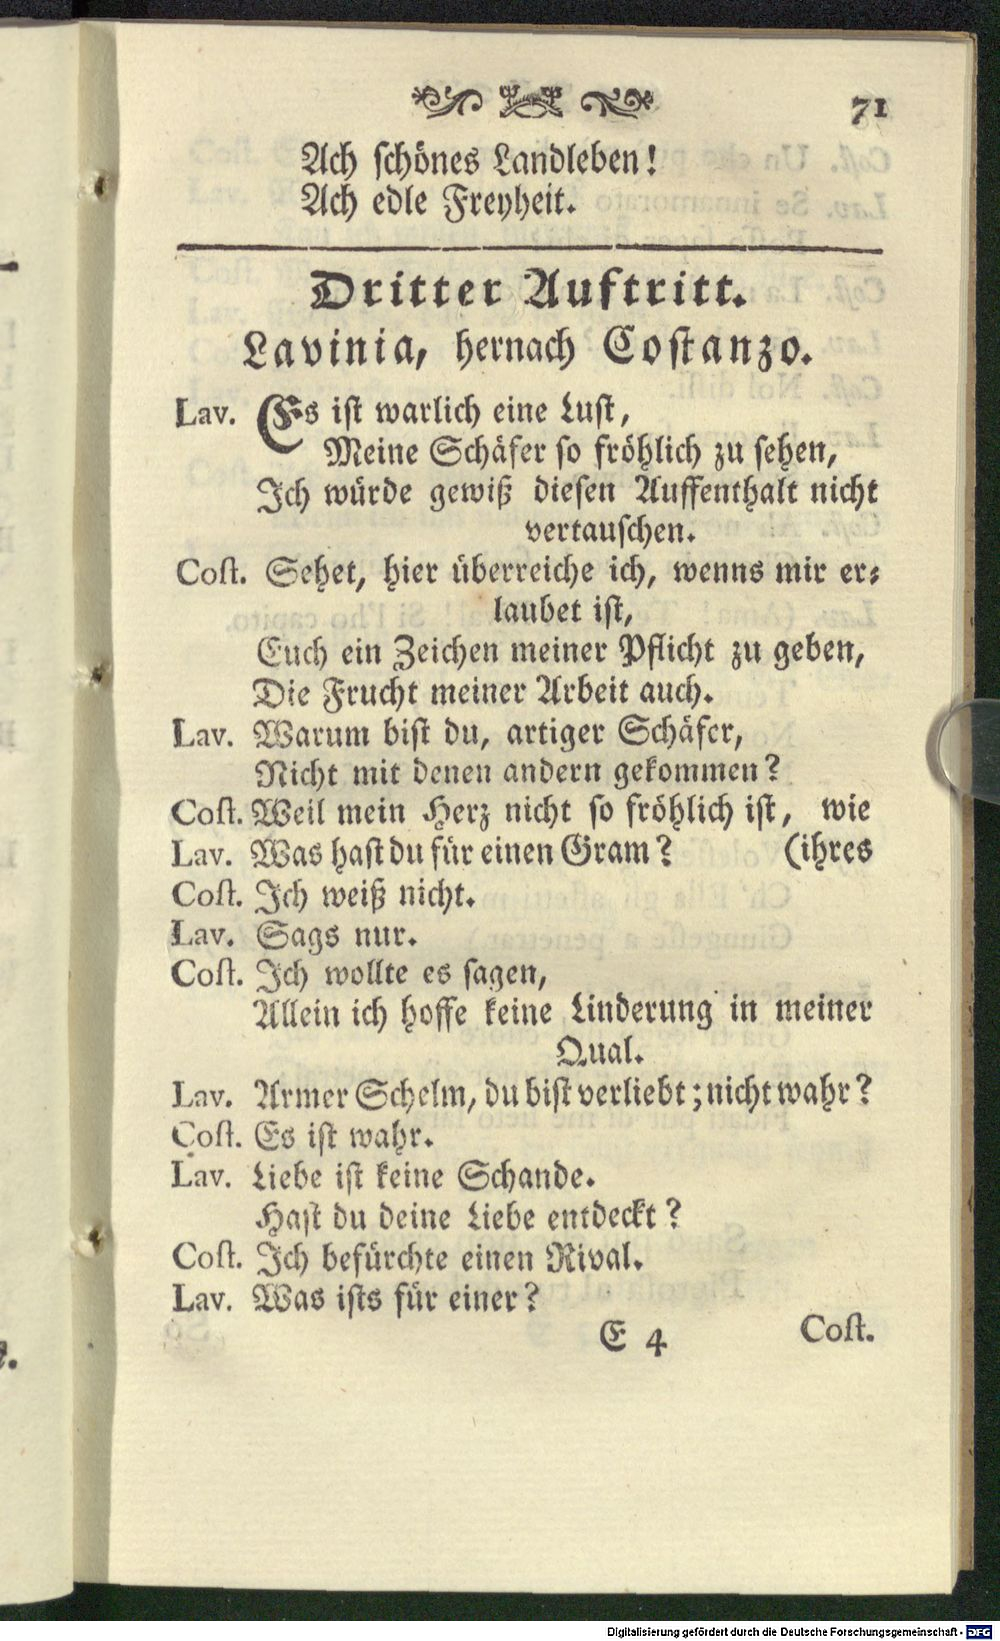 71
Ach schönes Landleben!
Ach edle Freyheit.
Dritter Auftritt.
Lavinia, hernach Costanzo.
Lav. Es ist warlich eine Lust,
Meine Schäfer so fröhlich zu sehen,
Ich würde gewiß diesen Auffenthalt nicht
vertauschen.
Cost. Sehet, hier überreiche ich, wenns mir er-
laubet ist,
Euch ein Zeichen meiner Pflicht zu geben,
Die Frucht meiner Arbeit auch.
Lav. Warum bist du, artiger Schäfer,
Nicht mit denen andern gekommen?
Cost. Weil mein Herz nicht so fröhlich ist, wie
Lav. Was hast du für einen Gram? (ihres
Cost. Ich weiß nicht.
Lav. Sags nur.
Cost. Ich wollte es sagen,
Allein ich hoffe keine Linderung in meiner
Qual.
Lav. Armer Schelm, du bist verliebt; nicht wahr?
Cost. Es ist wahr.
Lav. Liebe ist keine Schande.
Hast du deine Liebe entdeckt?
Cost. Ich befürchte einen Rival.
Lav. Was ists für einer?
E 4 Cost.
Digitalisierung gefördert durch die Deutsche Forschungsgemeinschaft - DFG